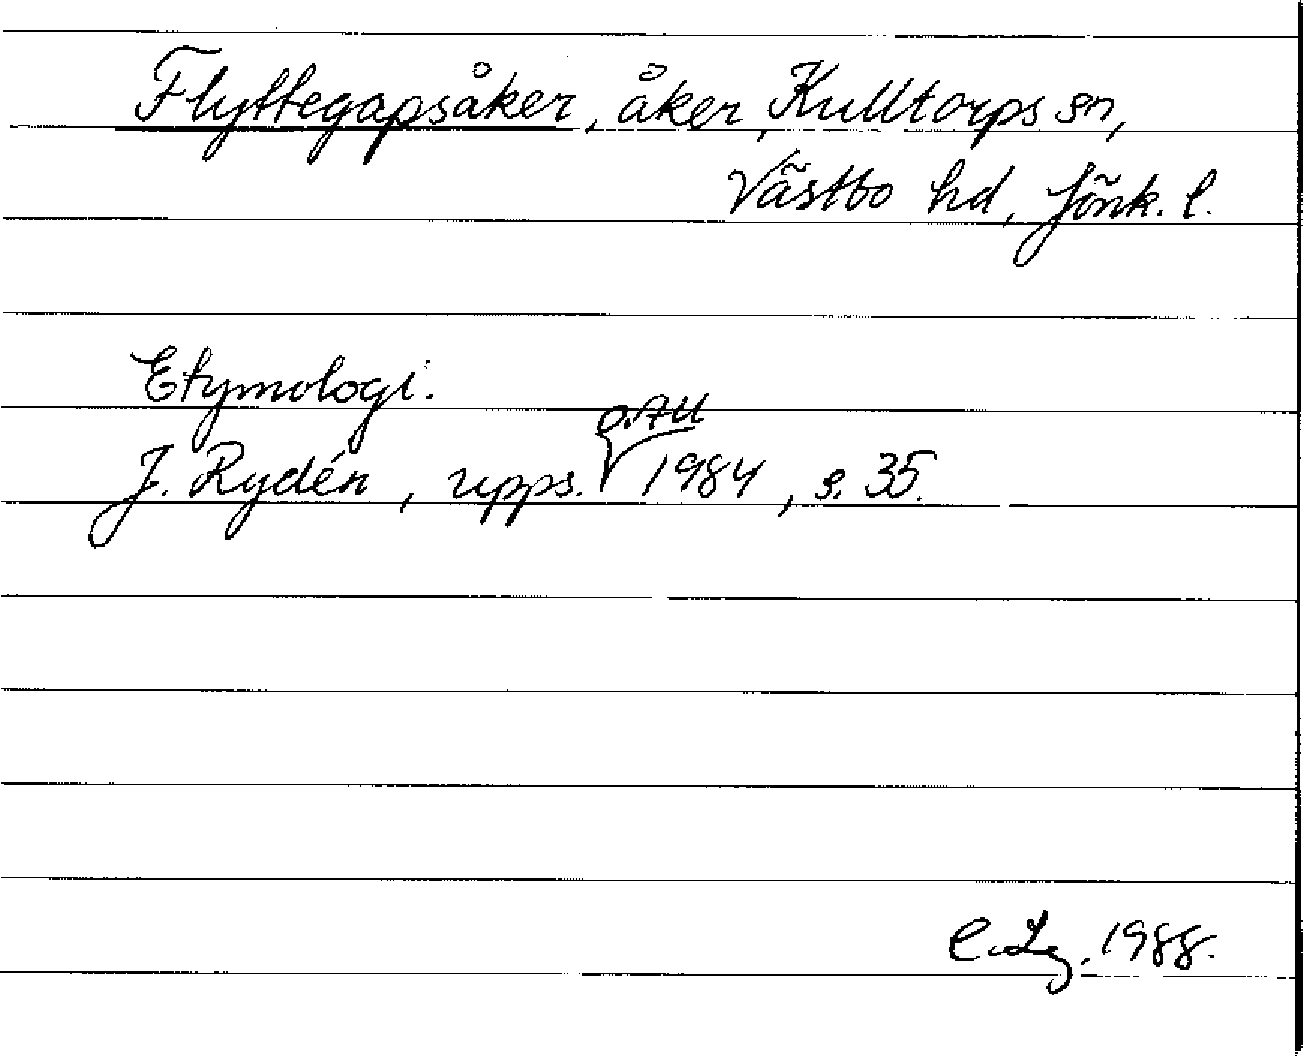 Flyttegapsåker, åker, Kulltorps sn,
Västbo hd, Jönk. l.
Etymologi.
J. Rydén, upps. OAU 1984, s. 35.
C. Lg. 1988.